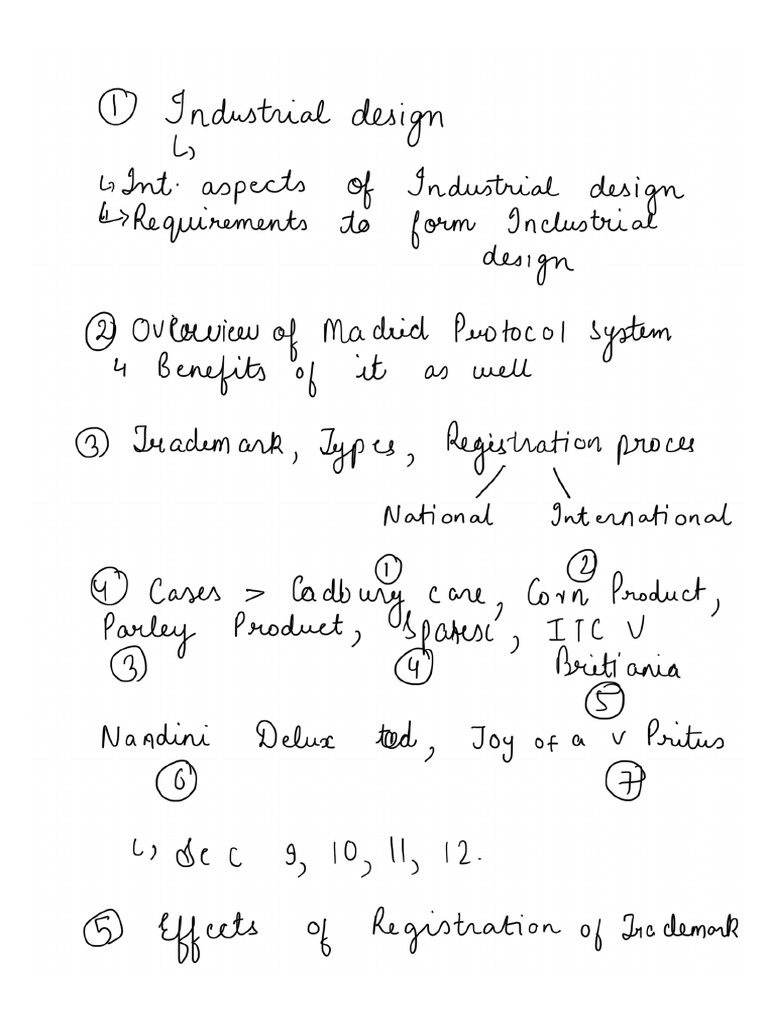 ① Industrial design
↳
↳ Int. aspects of Industrial design
↳ Requirements to form Industrial
design
② Overview of Madrid Protocol system
↳ Benefits of it as well
③ Trademark, Types, Registration proces
National International
① ②
④ Cases > Cadbury case, Corn Product,
Parley Product, , ITC V
③ ④ Brittania
⑤
Nandini Delux, Joy of a v
⑥ ⑦
↳ Sec 9, 10, 11, 12.
⑤ Effects of Registration of Trademark